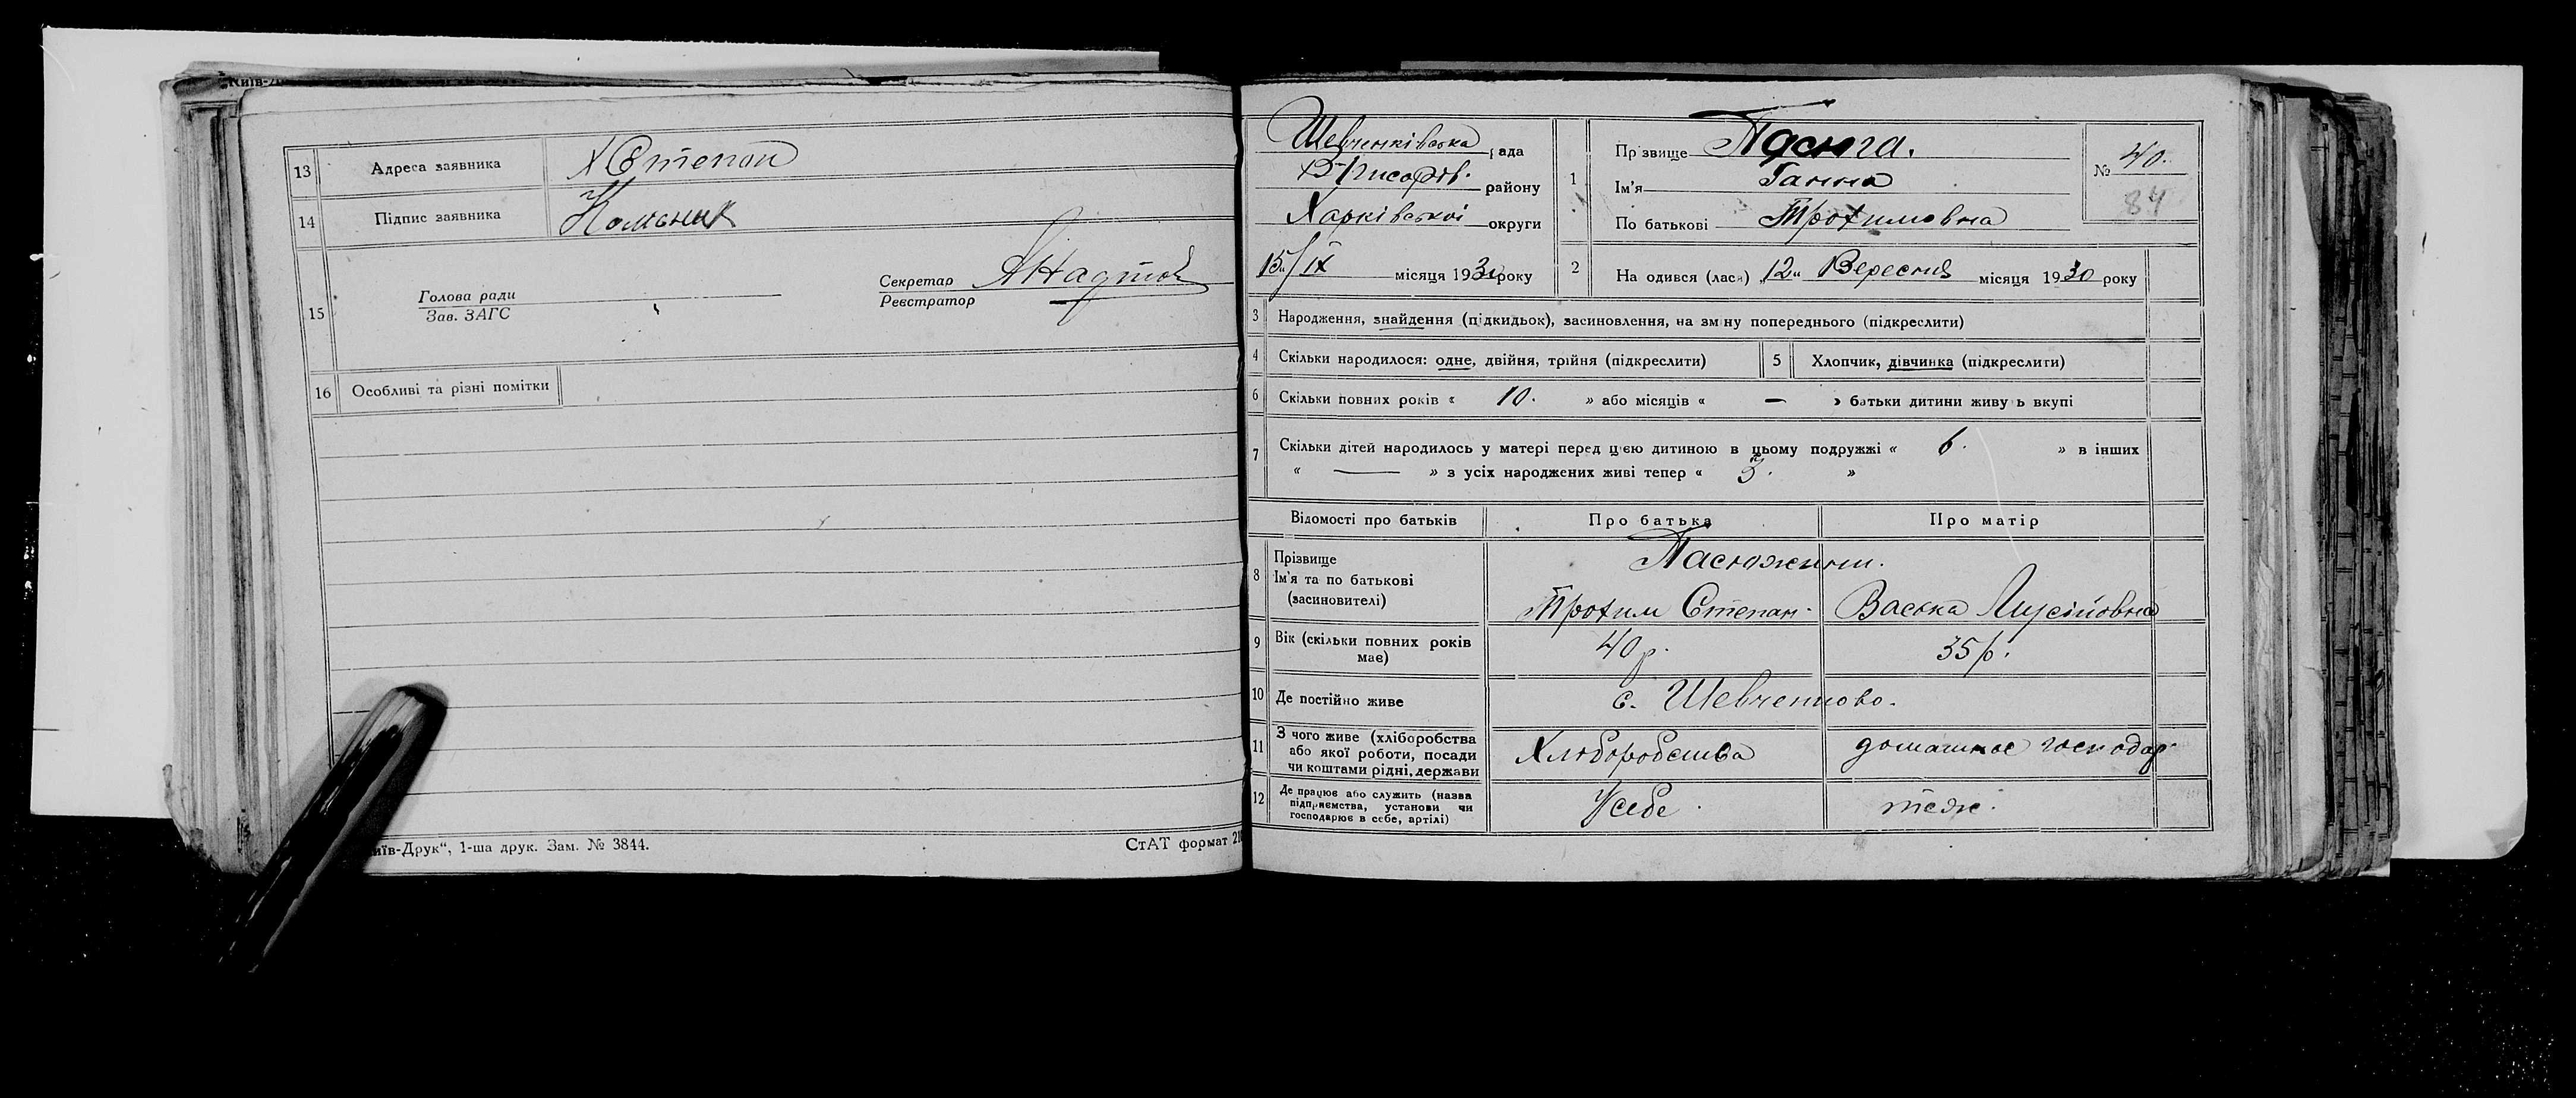 Київ-Д
13 Адреса заявника х Степан
14 Підпис заявника
15 Голова ради
Зав. ЗАГС
Секретар
Реєстратор
16 Особливі та різні помітки
иїв-Друк“, 1-ша друк. Зам. № 3844.
СтАТ формат 210
Шевченківська рада
району
Харківської округи
15/IX місяця 1930 року
1 Прізвище Пасюга.
Ім'я Ганна
По батькові Трохимовна
№ 40.
84
2 На одився (лася) „12“ Вересня місяця 1930 року
3 Народження, знайдення (підкидьок), засиновлення, на зміну попереднього (підкреслити)
4 Скільки народилося: одне, двійня, трійня (підкреслити)
5 Хлопчик, дівчинка (підкреслити)
6 Скільки повних років « 10. » або місяців « — » батьки дитини живу ь вкупі
7 Скільки дітей народилось у матері перед цією дитиною в цьому подружжі « 6. » в інших
« — » з усіх народжених живі тепер « 3. »
Відомості про батьків Про батька Про матір
8 Прізвище Пасюжини.
Ім'я та по батькові
(засиновителі) Трохим Степан. Васька
9 Вік (скільки повних років має) 40 р. 35 р.
10 Де постійно живе с. Шевченково.
11 З чого живе (хліборобства
або якої роботи, посади
чи коштами рідні, держави Хлюборобства домашнее господар.
12 Де працює або служить (назва
підприємства, установи чи
господарює в себе, артілі) У себе. теж.